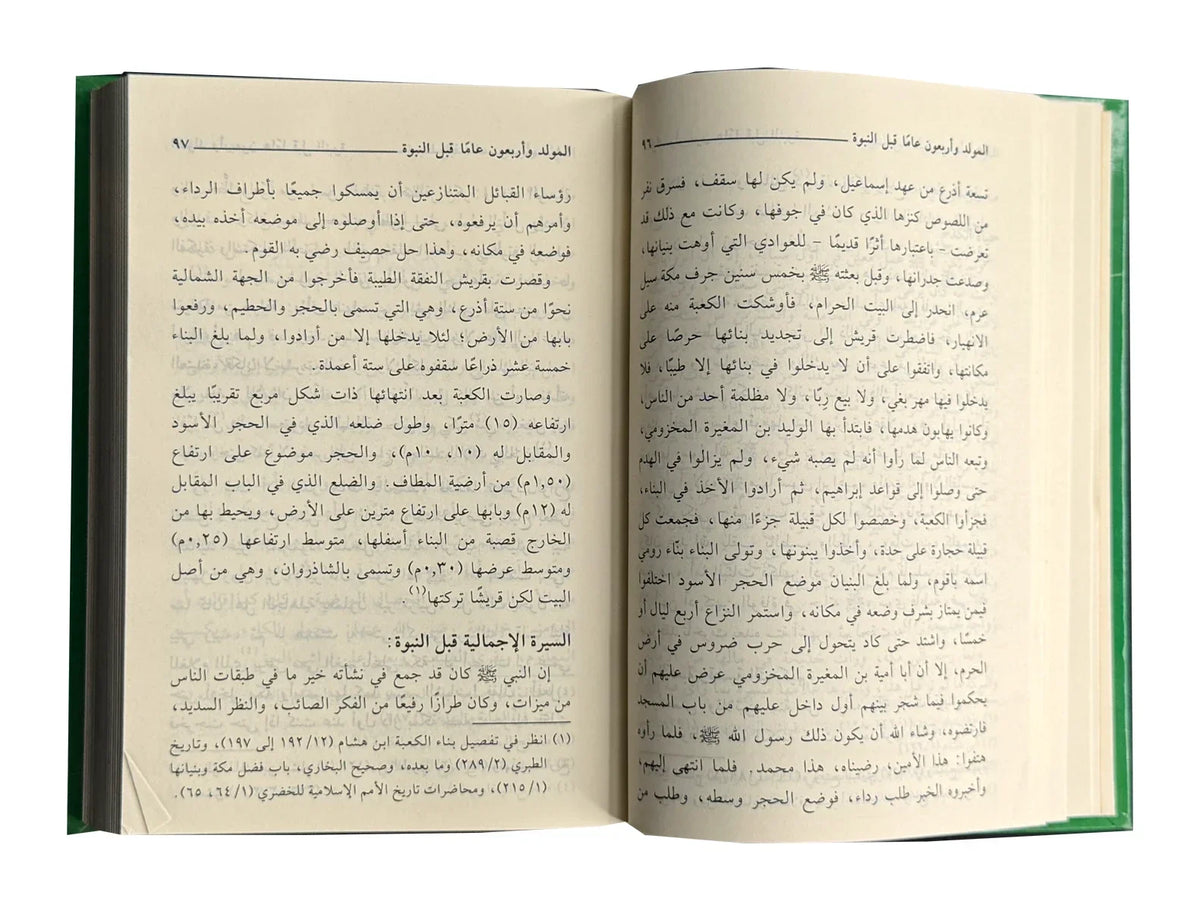 المولد وأربعون عامًا قبل النبوة ٩٦
تسعة أذرع من عهد إسماعيل، ولم يكن لها سقف، فسرق نفر
من اللصوص كنزها الذي كان في جوفها، وكانت مع ذلك قد
تعرضت - باعتبارها أثرًا قديمًا - للعوادي التي أوهت بنيانها،
وصدعت جدرانها، وقبل بعثته ﷺ بخمس سنين جرف مكة سيل
عرم، انحدر إلى البيت الحرام، فأوشكت الكعبة منه على
الانهيار، فاضطرت قريش إلى تجديد بنائها حرصًا على
مكانتها، واتفقوا على أن لا يدخلوا في بنائها إلا طيبًا، فلا
يدخلوا فيها مهر بغي، ولا بيع ربًا، ولا مظلمة أحد من الناس،
وكانوا يهابون هدمها، فابتدأ بها الوليد بن المغيرة المخزومي،
وتبعه الناس لما رأوا أنه لم يصبه شيء، ولم يزالوا في الهدم
حتى وصلوا إلى قواعد إبراهيم، ثم أرادوا الأخذ في البناء،
فجزأوا الكعبة، وخصصوا لكل قبيلة جزءًا منها، فجمعت كل
قبيلة حجارة على حدة، وأخذوا يبنونها، وتولى البناء بنّاء رومي
اسمه باقوم، ولما بلغ البنيان موضع الحجر الأسود اختلفوا
فيمن يمتاز بشرف وضعه في مكانه، واستمر النزاع أربع ليال أو
خمسًا، واشتد حتى كاد يتحول إلى حرب ضروس في أرض
الحرم، إلا أن أبا أمية بن المغيرة المخزومي عرض عليهم أن
يحكموا فيما شجر بينهم أول داخل عليهم من باب المسجد
فارتضوه، وشاء الله أن يكون ذلك رسول الله ﷺ، فلما رأوه
هتفوا: هذا الأمين، رضيناه، هذا محمد. فلما انتهى إليهم،
وأخبروه الخبر طلب رداء، فوضع الحجر وسطه، وطلب من
المولد وأربعون عامًا قبل النبوة ٩٧
رؤساء القبائل المتنازعين أن يمسكوا جميعًا بأطراف الرداء،
وأمرهم أن يرفعوه، حتى إذا أوصلوه إلى موضعه أخذه بيده،
فوضعه في مكانه، وهذا حل حصيف رضي به القوم.
وقصرت بقريش النفقة الطيبة فأخرجوا من الجهة الشمالية
نحوًا من ستة أذرع، وهي التي تسمى بالحجر والحطيم، ورفعوا
بابها من الأرض؛ لئلا يدخلها إلا من أرادوا، ولما بلغ البناء
خمسة عشر ذراعًا سقفوه على ستة أعمدة.
وصارت الكعبة بعد انتهائها ذات شكل مربع تقريبًا يبلغ
ارتفاعه (١٥) مترًا، وطول ضلعه الذي في الحجر الأسود
والمقابل له (١٠، ١٠م)، والحجر موضوع على ارتفاع
(١,٥٠م) من أرضية المطاف. والضلع الذي في الباب المقابل
له (١٢م) وبابها على ارتفاع مترين على الأرض، ويحيط بها من
الخارج قصبة من البناء أسفلها، متوسط ارتفاعها (٠,٢٥م)
ومتوسط عرضها (٠,٣٠م) وتسمى بالشاذروان، وهي من أصل
البيت لكن قريشًا تركتها(١).
السيرة الإجمالية قبل النبوة:
إن النبي ﷺ كان قد جمع في نشأته خير ما في طبقات الناس
من ميزات، وكان طرازًا رفيعًا من الفكر الصائب، والنظر السديد،
(١) انظر في تفصيل بناء الكعبة ابن هشام (١٩٢/١٢ إلى ١٩٧)، وتاريخ
الطبري (٢٨٩/٢) وما بعده، وصحيح البخاري، باب فضل مكة وبنيانها
(٢١٥/١)، ومحاضرات تاريخ الأمم الإسلامية للخضري (٦٤/١، ٦٥).